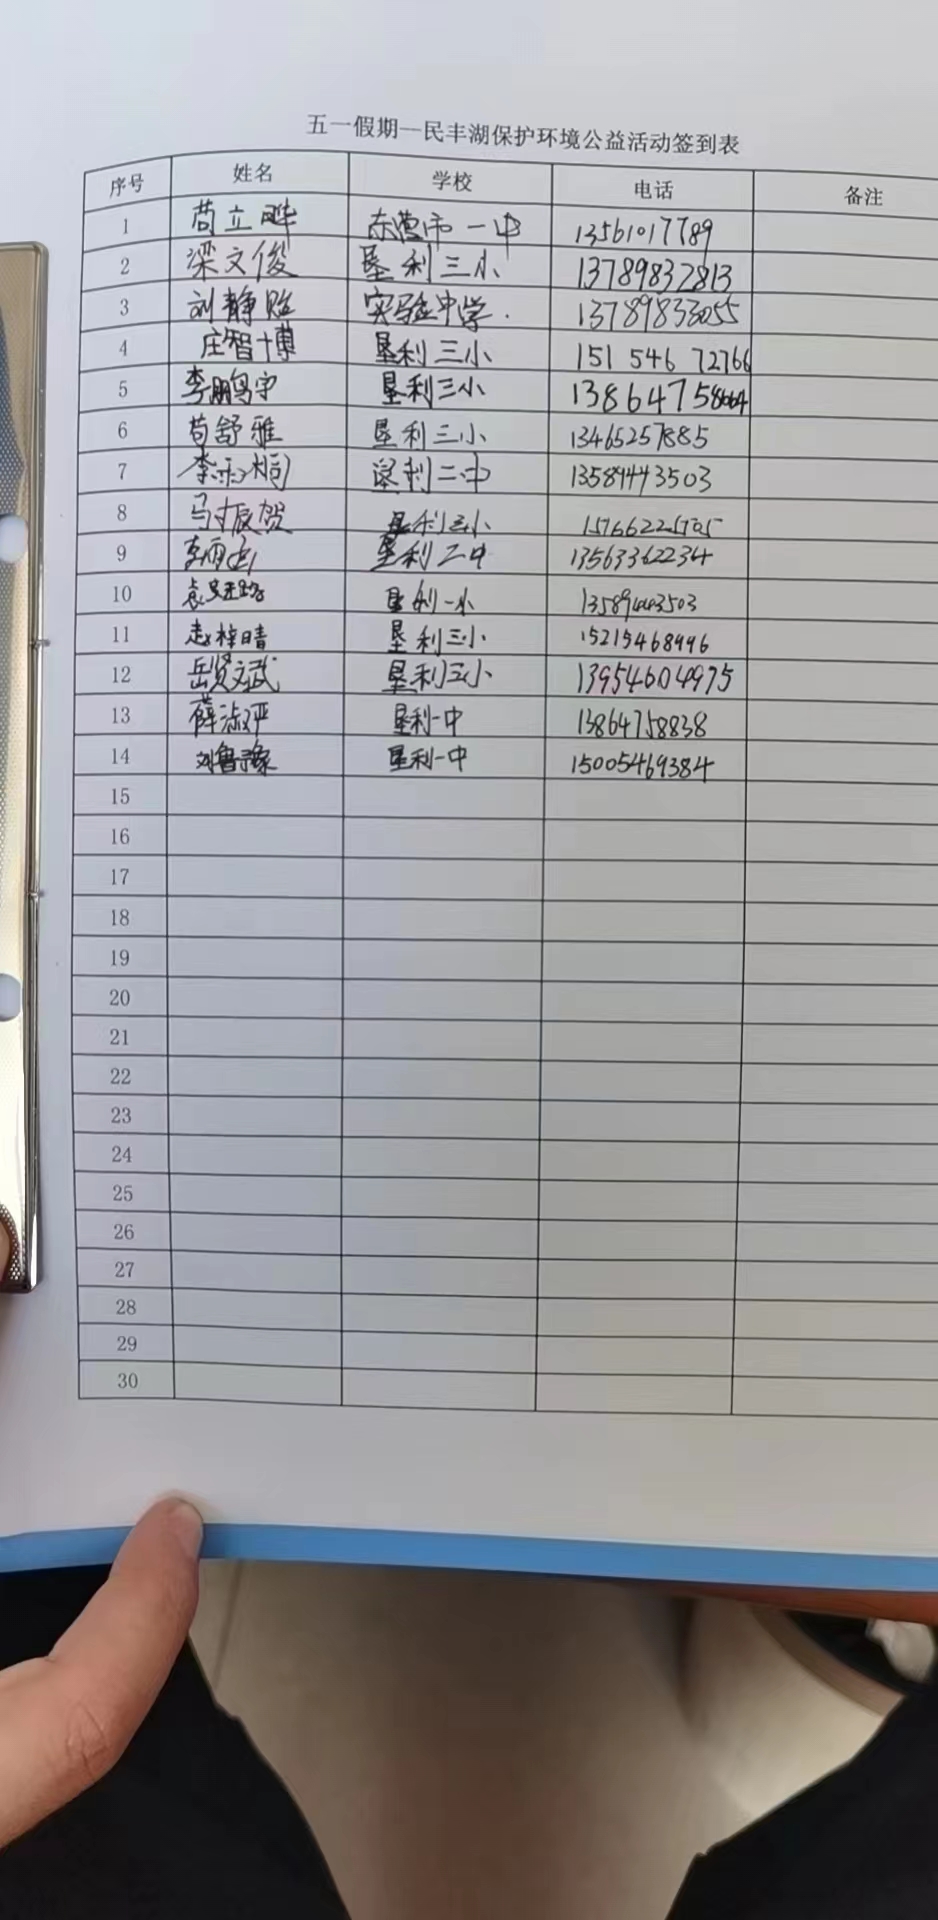 五一假期—民丰湖保护环境公益活动签到表
序号 姓名 学校 电话 备注
1 苟立晔 东营市一中 13561017789
2 梁文俊 垦利三小 13789832813
3 刘静贻 实验中学. 13789833055
4 庄智博 垦利三小 151 546 72766
5 李鹏宇 垦利三小 13864758664
6 苟舒雅 垦利三小 13465257885
7 李雨桐 垦利二中 13589443503
8 马振贺 垦利三小
9 垦利二中 13563362234
10 垦利一小 13589443503
11 赵梓晴 垦利三小 15215468996
12 岳贤文武 垦利三小 13954604975
13 薛淑评 垦利一中 13864758838
14 刘鲁豫 垦利一中 15005469384
15
16
17
18
19
20
21
22
23
24
25
26
27
28
29
30